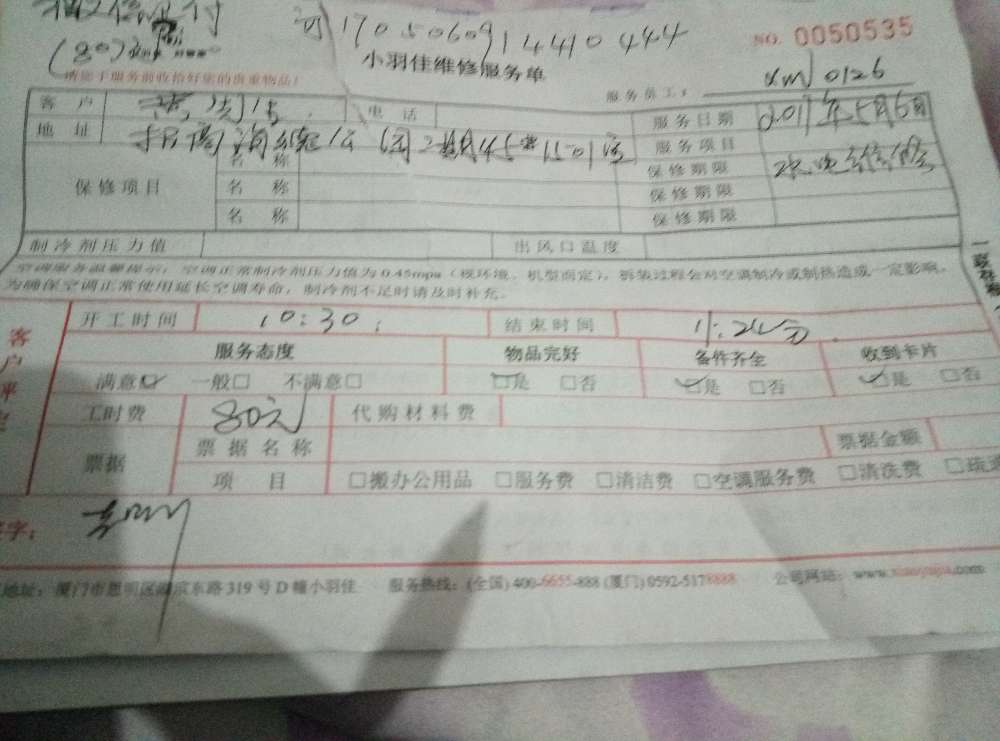 微信支付 订17050609144410444 NO. 0050535
(80元)
小羽佳维修服务单
请您于服务前收拾好您的贵重物品! 服务员工: xm 0126
客户 先生 电话 服务日期 2017年5月6日
地址 招商海德公园二期45#1501室 服务项目 水电维修
保修项目 名称 保修期限
名称 保修期限
名称 保修期限
制冷剂压力值 出风口温度
空调服务温馨提示:空调正常制冷剂压力值为0.45mpa(视环境、机型而定),拆装过程会对空调制冷或制热造成一定影响。
为确保空调正常使用延长空调寿命,制冷剂不足时请及时补充。
开工时间 10:30 结束时间
客户评定 服务态度 物品完好 备件齐全 收到卡片
满意☑ 一般□ 不满意□ ☑是 □否 ☑是 □否 ☑是 □否
工时费 80元 代购材料费
票据 票据名称 票据金额
项目 □搬办公用品 □服务费 □清洁费 □空调服务费 □清洗费
签字:
地址:厦门市思明区湖滨东路319号D幢小羽佳 服务热线:(全国)400-6655-888 (厦门)0592-5178888 公司网站:www.xiaoyujia.com